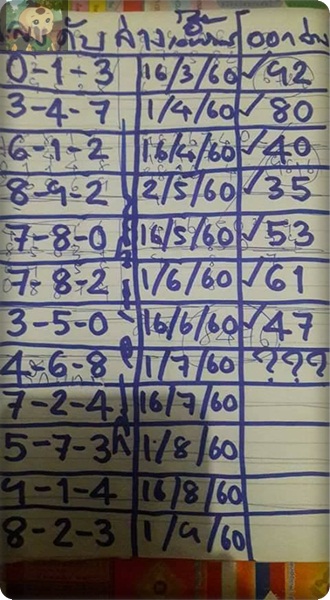 เลขดับ ล่าง ออกล่าง
0-1-3 16/3/60 ✓92
3-4-7 1/4/60 ✓80
6-1-2 16/4/60 ✓40
8-9-2 2/5/60 ✓35
7-8-0 16/5/60 ✓53
7-8-2 1/6/60 ✓61
3-5-0 16/6/60 ✓47
4-6-8 1/7/60 ???
7-2-4 16/7/60
5-7-3 1/8/60
9-1-4 16/8/60
8-2-3 1/9/60